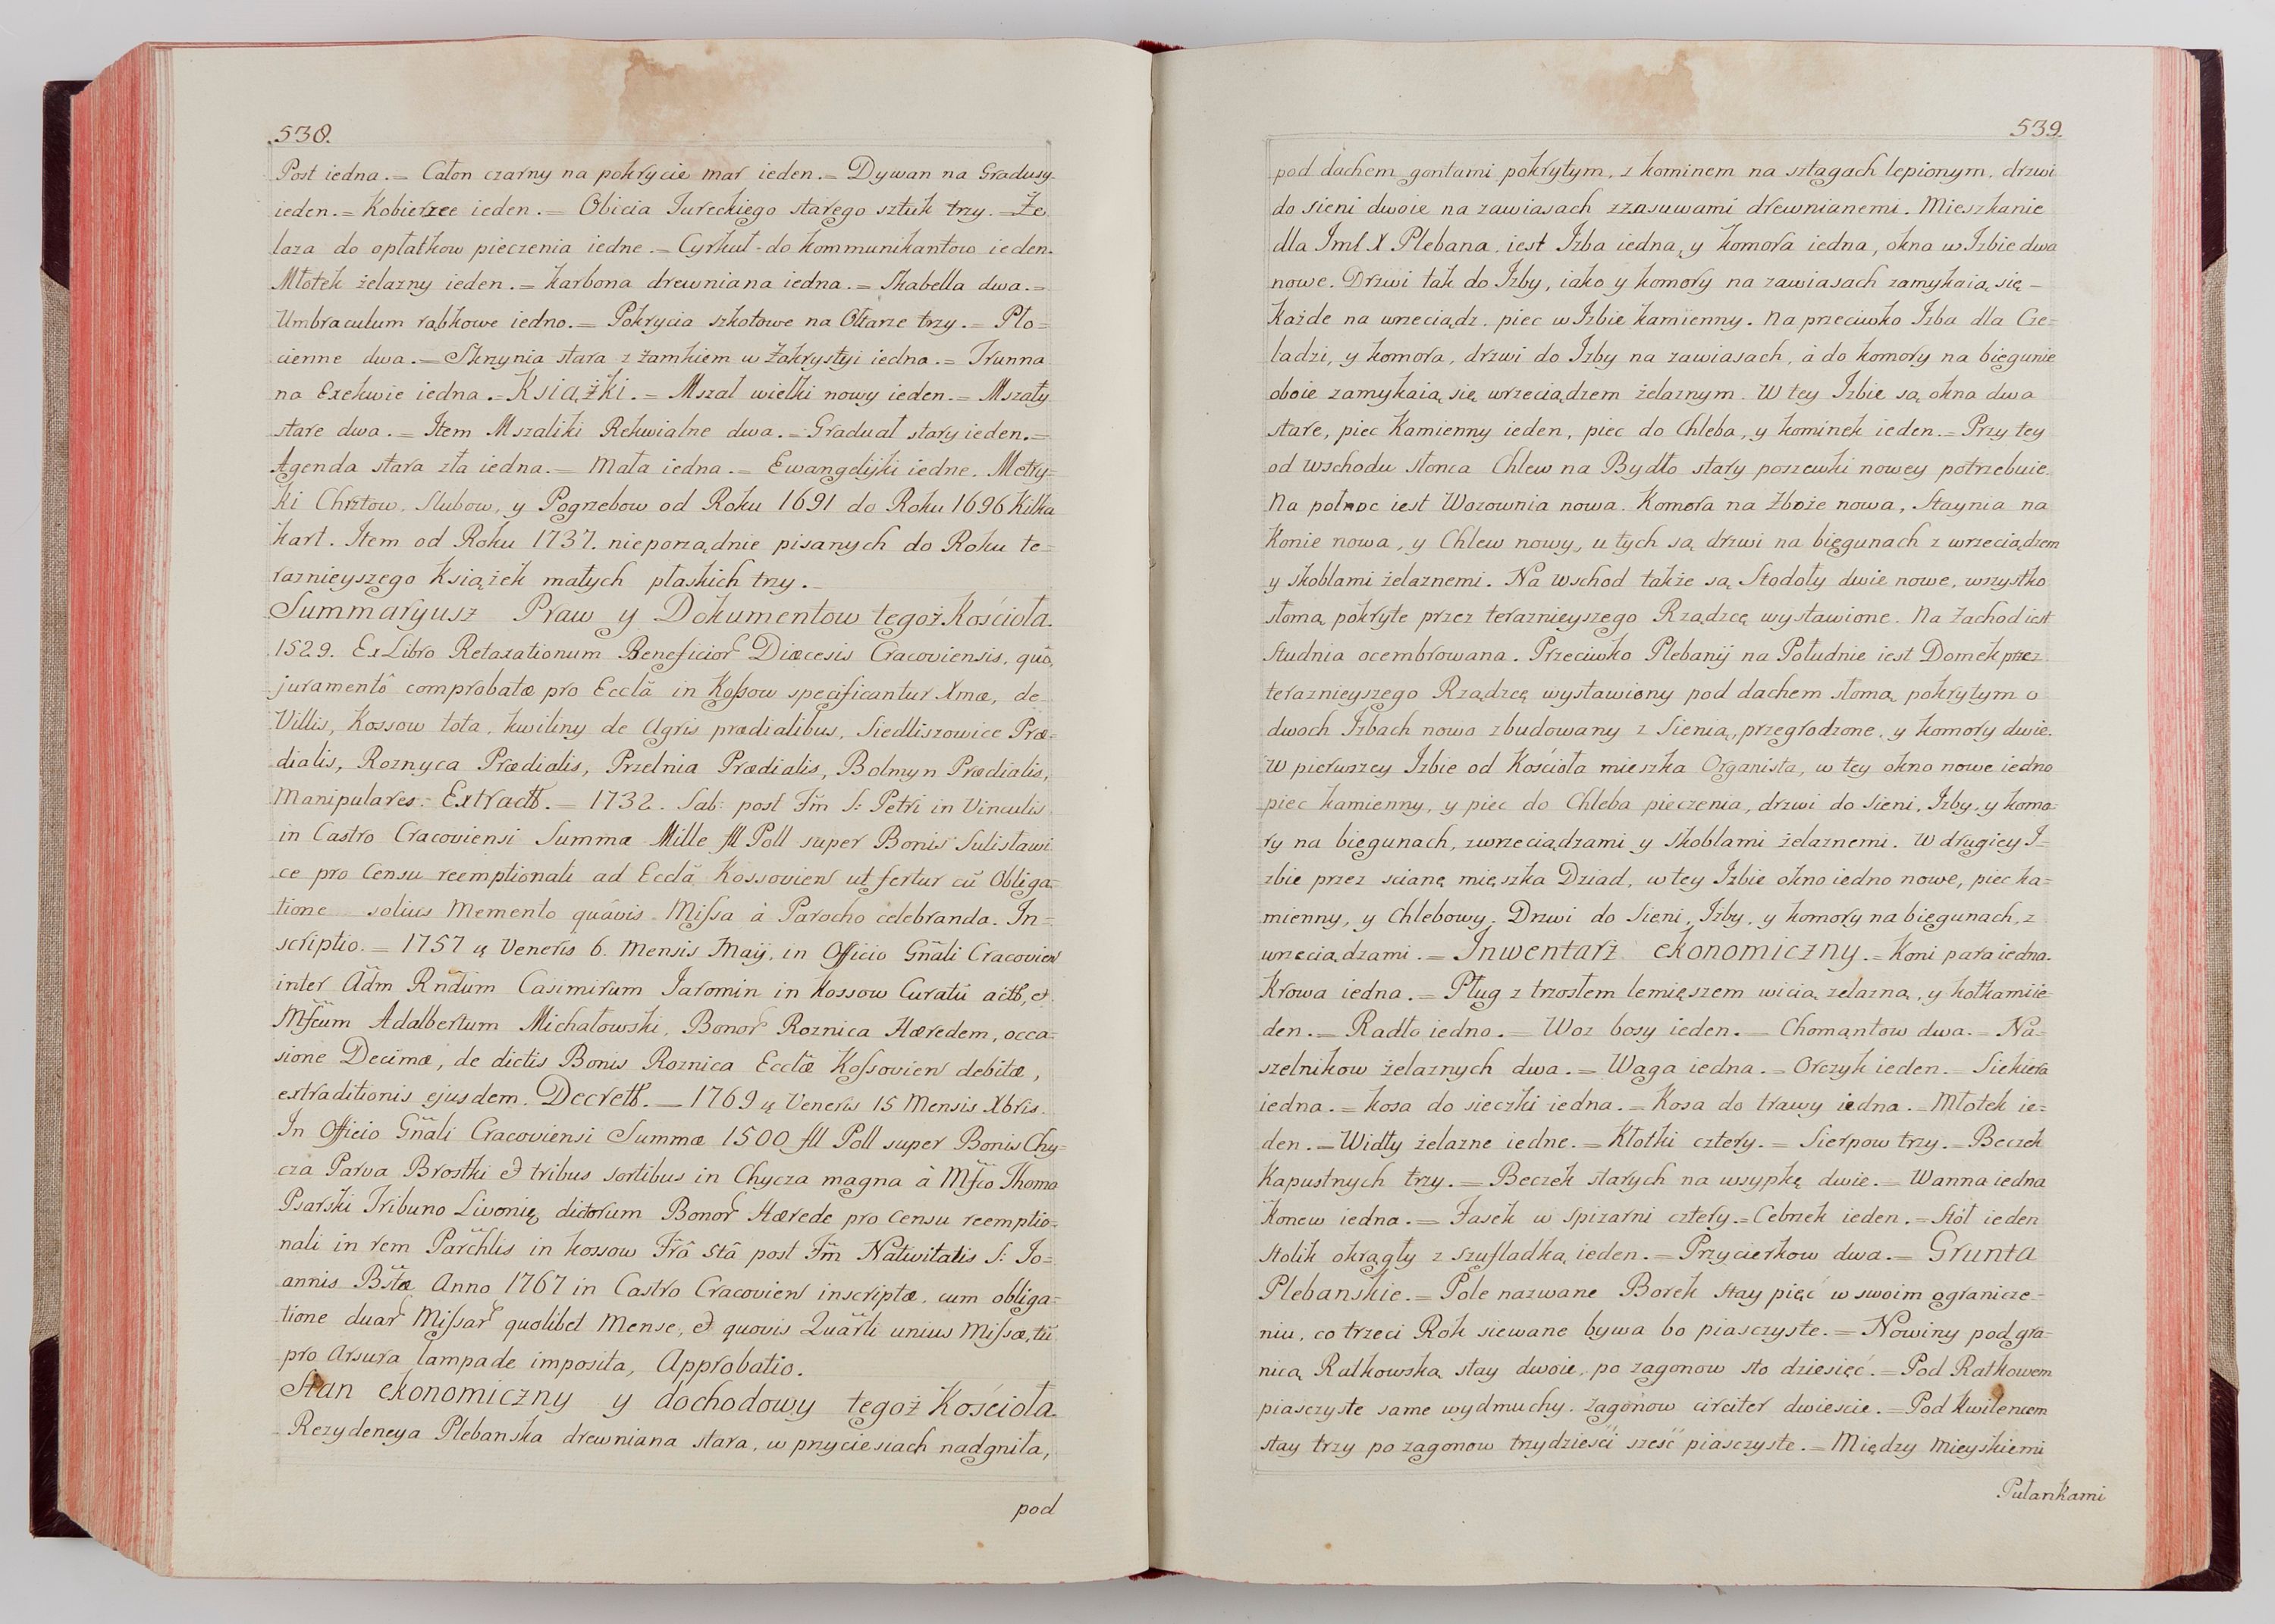 538.
Post iedna. = Całon czarny na pokrycie mar ieden. = Dywan na Gradusy
ieden. = Kobierzec ieden. = Obicia Tureckiego starego sztuk trzy. = Że
laza do opłatkow pieczenia iedne. = Cyrkuł do kommunikantow ieden.
Młotek żelazny ieden. = karbona drewniana iedna. = Skabella dwa. =
Umbraculum rąbkowe iedno. = Pokrycia szkotowe na Ołtarze trzy. = Pło=
cienne dwa. = Skrzynia stara z zamkiem w Zakrystyi iedna. = Trunna
na Exekwie iedna. = Książki. = Mszał wielki nowy ieden. = Mszały
stare dwa. = Item Mszaliki Rekwialne dwa. = Graduał stary ieden. =
Agenda stara zła iedna. = Mała iedna. = Ewangelijki iedne. Metry=
ki Chrztow, Slubow, y Pogrzebow od Roku 1691 do Roku 1696 Kilka
kart. Item od Roku 1737. nieporządnie pisanych do Roku te=
raznieyszego Książek małych płaskich trzy. _
Summaryusz Praw y Dokumentow tegoż Kościoła.
1529. Ex Libro Retaxationum Beneficior Diæcesis Cracoviensis, quo,
juramentô comprobatæ pro Ecclâ in Kossow specificantur Xmæ, de
Villis, Kossow tota, kwiliny de Agris prædialibus, Siedliszowice Præ=
dialis, Roznyca Prædialis, Przelnia Prædialis, Bolmyn Prædialis,
Manipulares. Extractb. = 1732. Sab: post Fm S: Petri in Vinculis
in Castro Cracoviensi Summa Mille fll Poll super Bonis Sulisławi
ce pro Censu reemptionali ad Ecclâ Kossovien ut fertur cũ Obliga=
tione solius Memento quâvis Missa à Parocho celebranda. In=
scriptio. = 1757 ą Veneris 6. Mensis Maij, in Officio Gñali Cracovien
inter Adm Rndum Casimirum Jaromin in Kossow Curatũ actb, et
Mfcum Adalbertum Michałowski, Bonor Roznica Hæredem, occa=
sione Decimæ, de dictis Bonis Roznica Eccłæ Kossovien debitæ,
extraditionis ejusdem. Decretb. _ 1769 ą Veneris 15 Mensis Xbris.
In Officio Gñali Cracoviensi Summæ 1500 fll Poll super Bonis Chy=
cza Parva Brostki et tribus sortibus in Chycza magna à Mfco Thoma
Psarski Tribuno Livonię dictorum Bonor Hærede pro Censu reemptio=
nali in rem Parchlis in kossow Frâ Stâ post Fm Nativitatis S: Jo=
annis Bstæ Anno 1767 in Castro Cracovien inscriptæ, cum obliga=
tione duar Missar quolibet Mense, et quovis Quarti unius Missæ, tũ
pro Arsura Lampade imposita, Approbatio.
Stan ekonomiczny y dochodowy tegoż Kościoła.
Rezydencya Plebanska drewniana stara, w przyciesiach nadgniła,
pod
539.
pod dachem gontami pokrytym, z kominem na sztagach lepionym, drzwi
do sieni dwoie na zawiasach zzasuwami drewnianemi. Mieszkanie
dla Jmł X Plebana iest Izba iedna, y komora iedna, okna w Izbie dwa
nowe. Drzwi tak do Izby, iako y komory na zawiasach zamykaią się _
Każde na wrzeciądz, piec w Izbie kamienny. Na przeciwko Izba dla Cze=
ladzi, y komora, drzwi do Izby na zawiasach, à do komory na biegunie
oboie zamykaią się wrzeciądzem żelaznym. W tey Izbie są okna dwa
stare, piec Kamienny ieden, piec do Chleba, y kominek ieden. = Przy tey
od Wschodu słonca Chlew na Bydło stary poszewki nowey potrzebuie.
Na połnoc iest Wozownia nowa. Komora na Zboże nowa, Staynia na
Konie nowa, y Chlew nowy, u tych są drzwi na biegunach z wrzeciądzem
y skoblami żelaznemi. Na Wschod także są Stodoły dwie nowe, wszystko
słomą pokryte przez teraznieyszego Rządzcę wystawione. Na Zachod iest
Studnia ocembrowana. Przeciwko Plebanij na Południe iest Domek przez
teraznieyszego Rządzcę wystawiony pod dachem słomą pokrytym o
dwoch Izbach nowo zbudowany z Sienią, przegrodzone, y komory dwie.
W pierwszey Izbie od Kościoła mieszka Organista, w tey okno nowe iedno
piec kamienny, y piec do Chleba pieczenia, drzwi do Sieni, Izby, y komo=
ry na biegunach, zwrzeciądzami y skoblami żelaznemi. W drugiey I=
zbie przez scianę mięszka Dziad, w tey Izbie okno iedno nowe, piec ka=
mienny, y Chlebowy. Drzwi do Sieni, Izby, y komory na biegunach, z
wrzeciądzami. = Inwentarz ekonomiczny. = Koni para iedna.
Krowa iedna. = Pług z trzosłem lemięszem wicią zelazną, y kołkami ie
den. = Radło iedno. = Woz bosy ieden. = Chomąntow dwa. = Na=
szelnikow żelaznych dwa. = Waga iedna. = Orczyk ieden. = Siekiera
iedna. = kosa do sieczki iedna. = Kosa do trawy iedna. = Młotek ie=
den. = Widły żelazne iedne. = Kłotki cztery. = Sierpow trzy. = Beczek
Kapustnych trzy. = Beczek starych na wsypkę dwie. = Wanna iedna
Konew iedna. = Fasek w spizarni cztery. = Cebrzek ieden. = Stół ieden
Stolik okrągły z szufladką ieden. = Przycierkow dwa. = Grunta
Plebanskie. = Pole nazwane Borek stay pięć w swoim ogranicze=
niu, co trzeci Rok siewane bywa bo piasczyste. = Nowiny pod gra=
nicą Ratkowską stay dwoie, po zagonow sto dziesięć. = Pod Ratkowem
piasczyste same wydmuchy, zagonow circiter dwieście. = Pod Kwilencem
stay trzy po zagonow trzydzieści sześć piasczyste. = Między Mieyskiemi
Pułankami